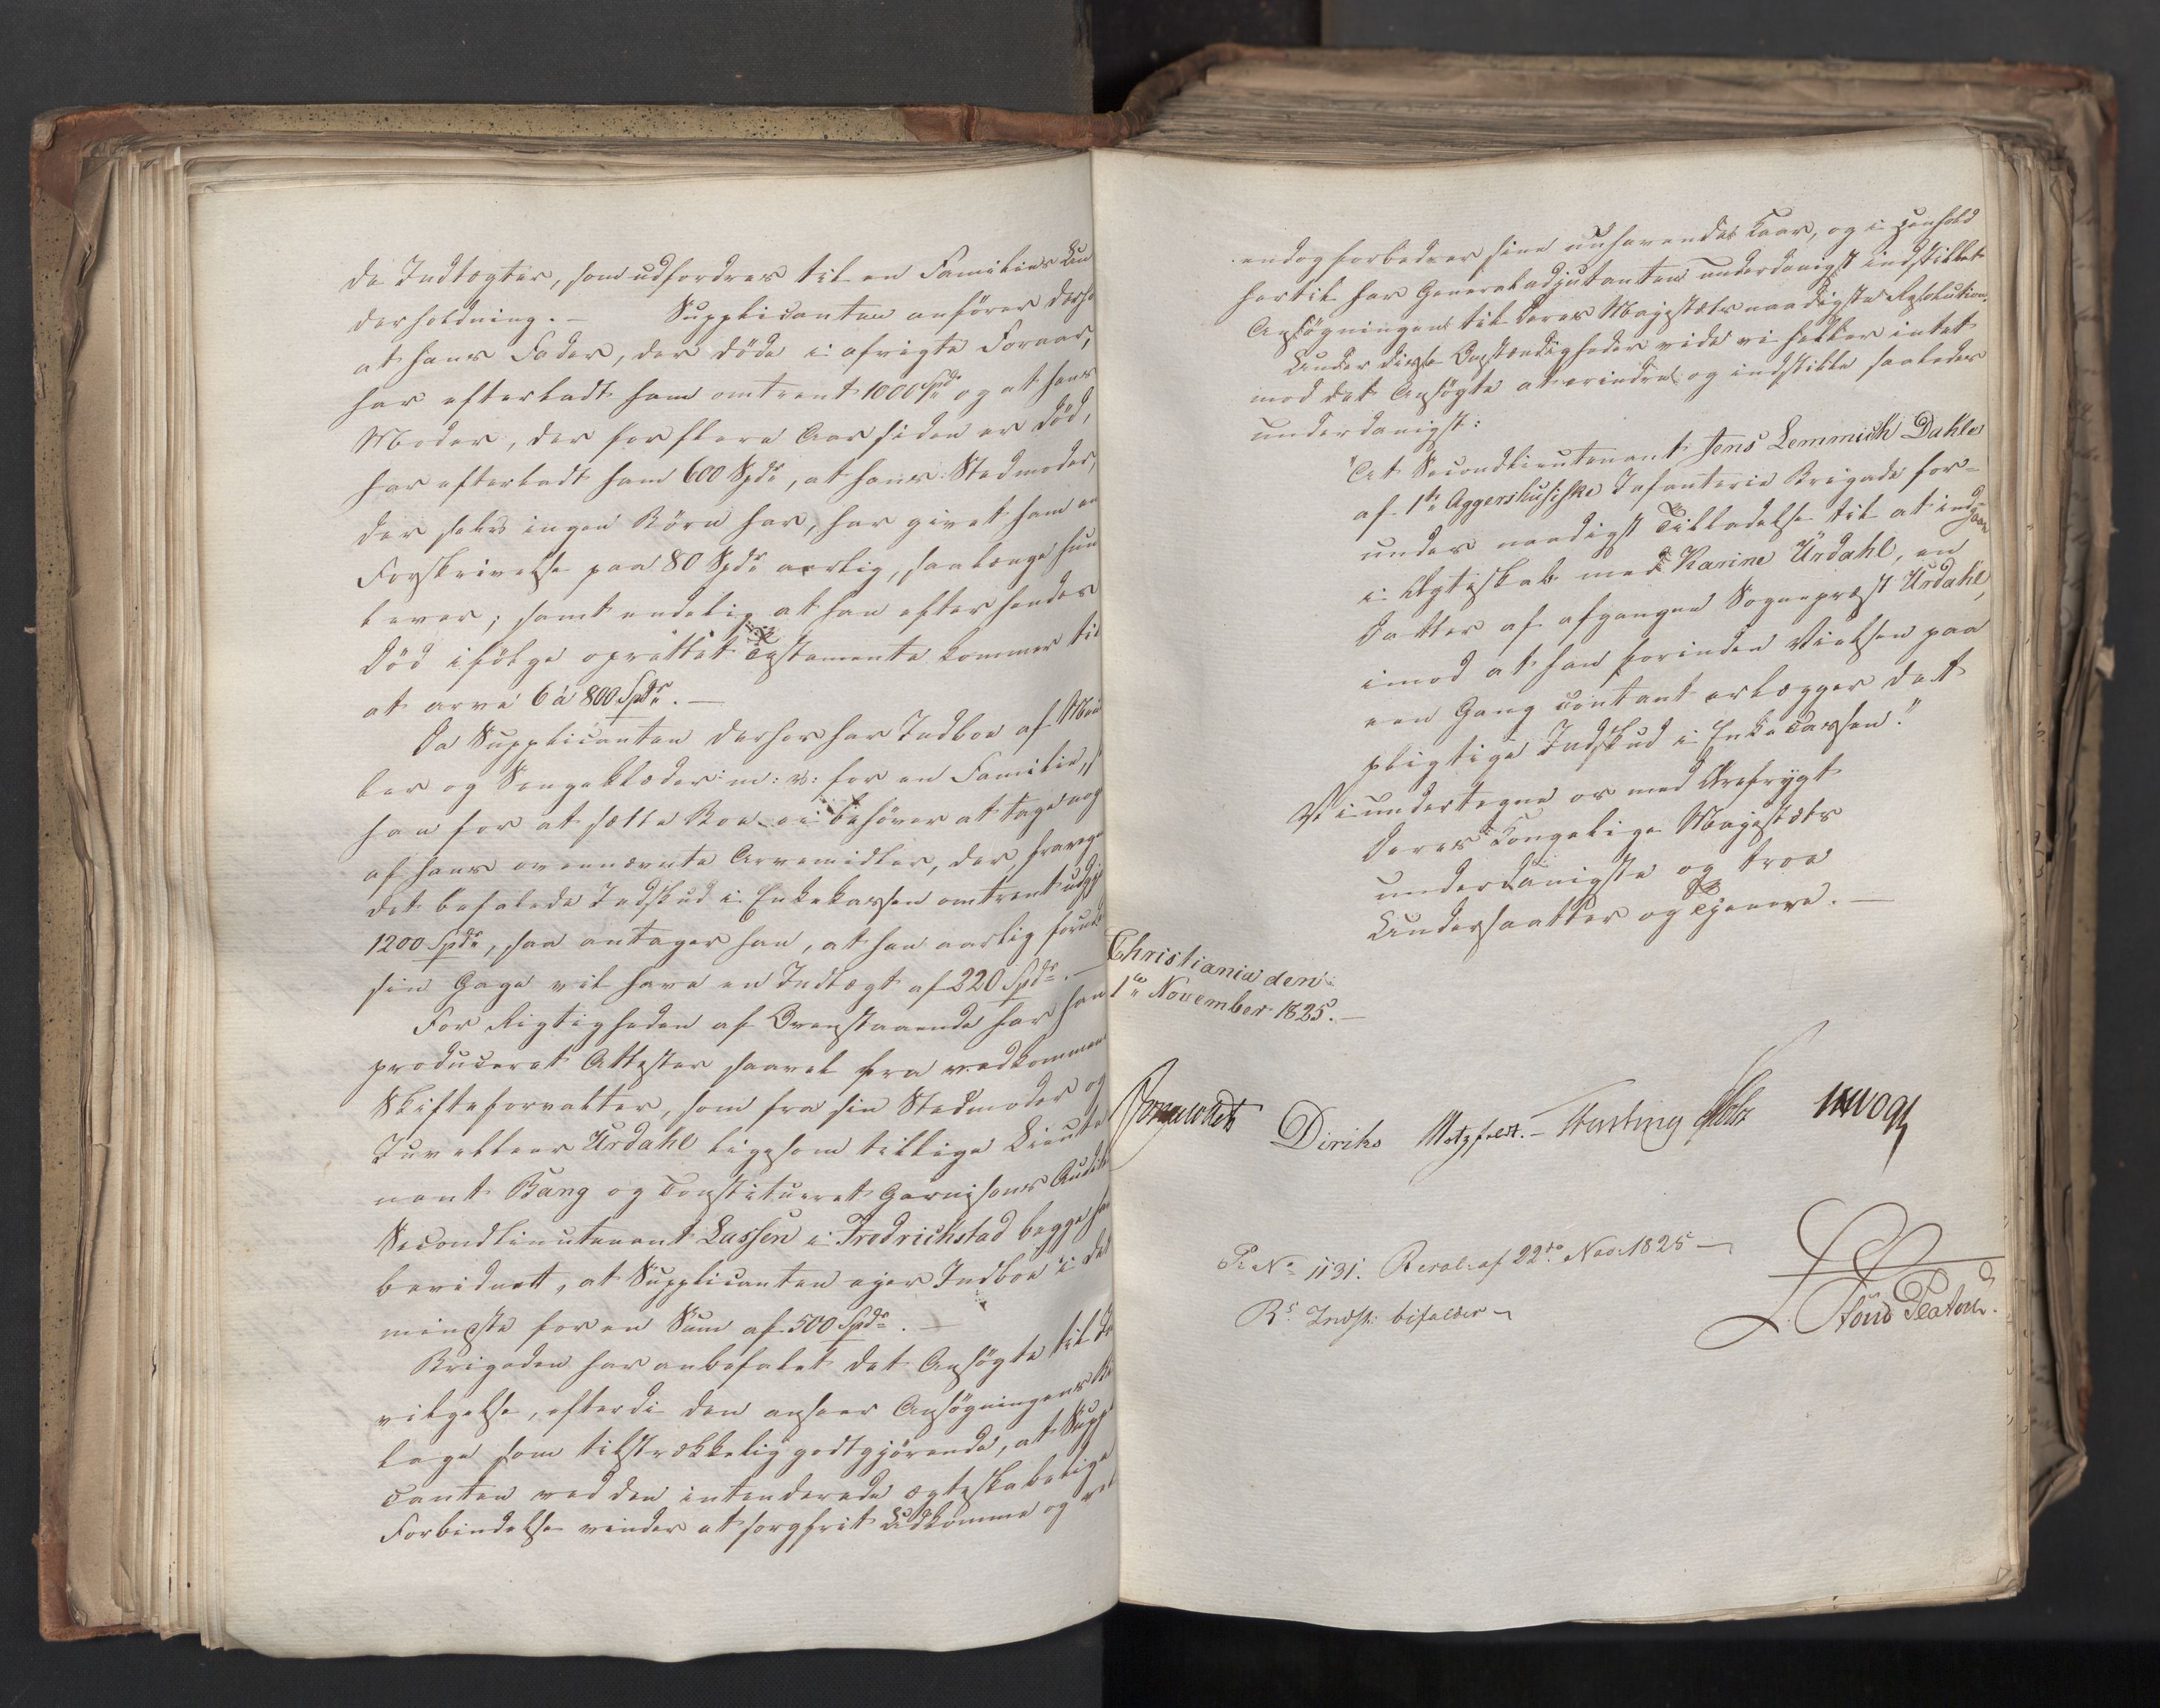 de Indtægter, som udfordres til en Families Un
derholdning. — Supplicanten anfører derho
at hans Fader, der døde i afvigte Foraar,
har efterladt ham omtrent 1000 Spdr og at hans
Moder, der for flere Aar siden er død,
har efterladt ham 600 Spdr, at hans Stedmoder,
der selv ingen Børn har, har givet ham en
Forskrivelse paa 80 Spdr aarlig, saalænge hun
lever; samt endelig at han efter hendes
Død ifølge oprettet Testamente kommer til
at arve 6 à 800 Spdr. —
Da Supplicanten derhos har Indboe af Meu
ler og Sengeklæder m: v: for en Familie, s
han for at sætte Boe ei behøver at tage nog
af hans ovennævnte Arvemidler, der fraregn
det befalede Indskud i Enkekassen omtrent udgjø
1200 Spdr, saa antager han, at han aarlig foruden
sin Gage vil have en Indtægt af 220 Spdr. —
For Rigtigheden af Ovenstaaende har han
produceret Attester saavel fra vedkommen
Skifteforvalter, som fra sin Stedmoder og
Juvelleer Urdahl ligesom tillige Lieute
nant Bang og Constitueret Garnisons Audite
Secondlieutenant Lassen i Fredrichstad begge har
bevidnet, at Supplicanten ejer Indboe i det
mindste for en Sum af 500 Spdr. —
Brigaden har anbefalet det Ansøgte til Be
vilgelse, efterdi den anseer Ansøgningens Bi
lage som tilstrækkelig godtgjørende, at Suppli
canten ved den intenderede ægteskabelige
Forbindelse vinder et sorgfrit Udkomme og vel
endog forbedrer sine nuhavende Kaar, og i Henhold
hertil har Generaladjutanten underdanigst indstillet
Ansøgningen til Deres Majestæts naadigste Resolution.
Under disse Omstændigheder vide vi heller intet
mod det Ansøgte at erindre og indstille saaledes
underdanigst:
"At Secondlieutenant Jens Lemmich Dahle
af 1ste Aggershusiske Infanterie Brigade for-
undes naadigst Tilladelse til at indgaae
i Ægteskab med Karine Urdahl, en
Datter af afgangne Sognepræst Urdahl,
imod at han forinden Vielsen paa
een Gang contant erlægger det
pligtige Indskud i Enkecassen."
Vi undertegne os med Ærefrygt
Deres Kongelige Majestæts
underdanigste og troe
Undersaatter og Tjenere. —
Christiania den
1ste November 1825. —
Diriks Motzfeldt. — Fasting Holst
Pr No 1131. Resol: af 22de Nov: 1825 —
Rs Indst: bifaldes